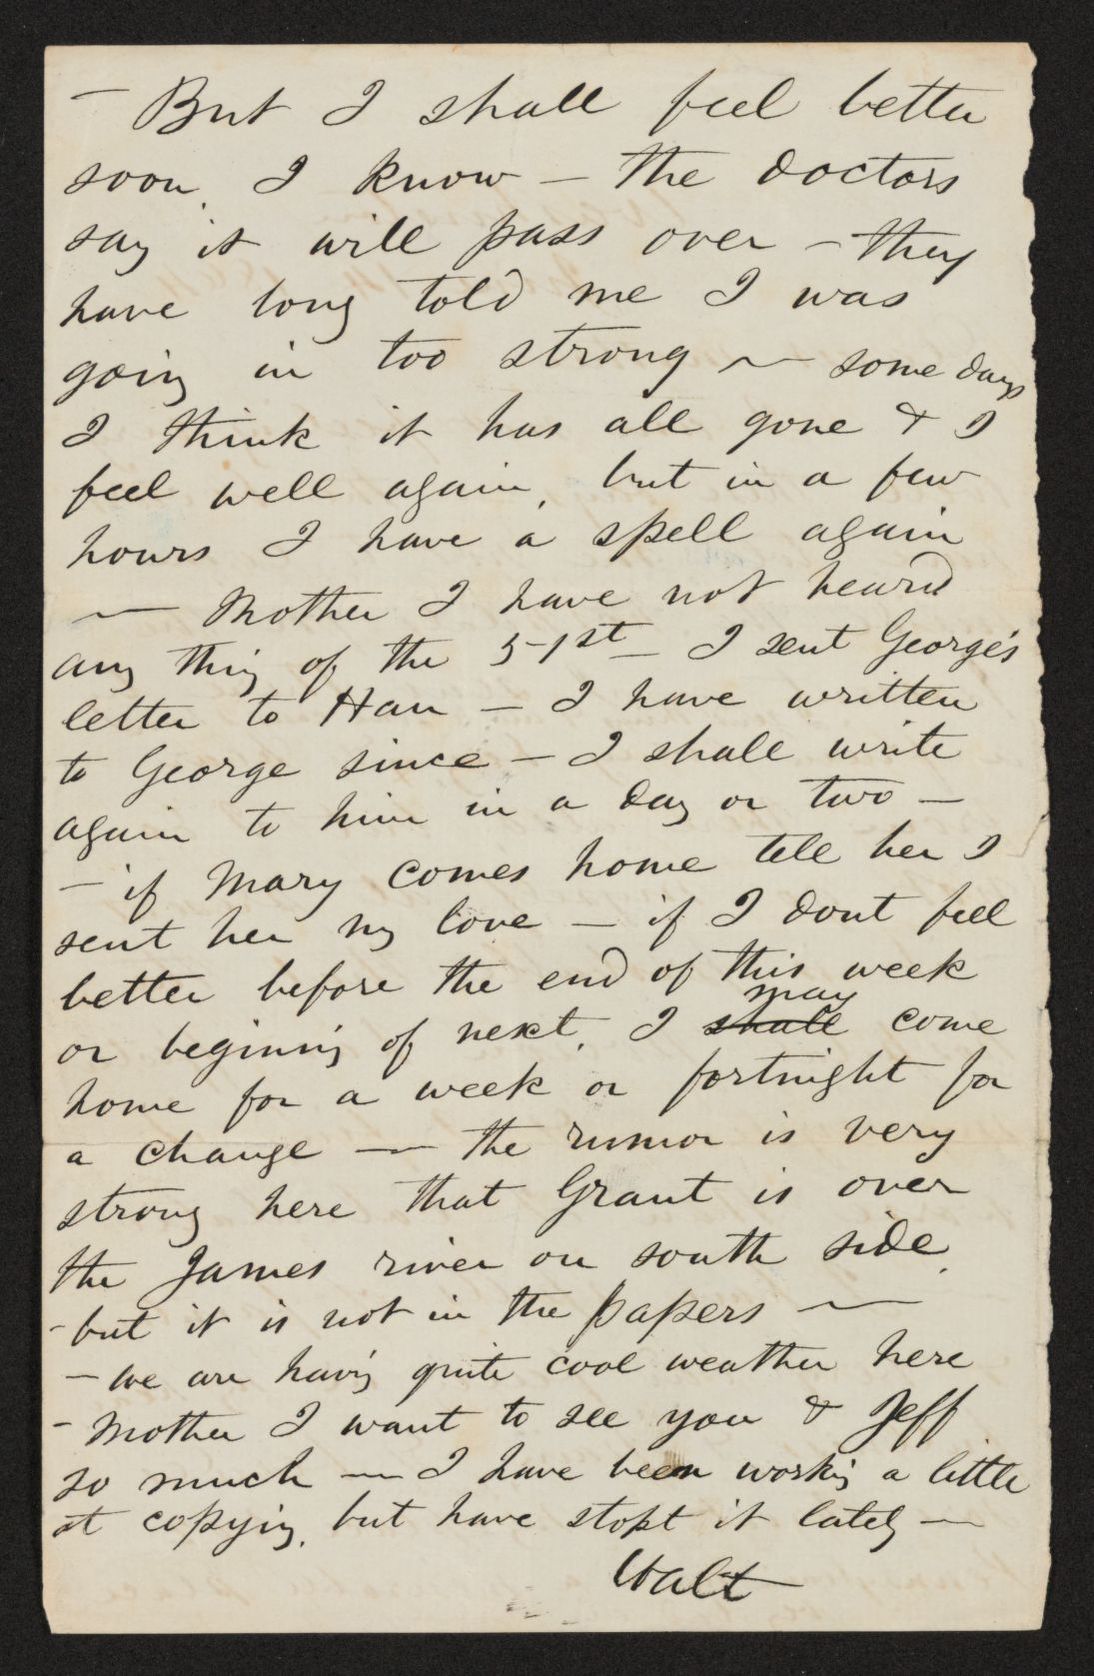 — But I shall feel better
soon, I know — the doctors
say it will pass over — they
have long told me I was
going in too strong — some days
I think it has all gone & I
feel well again, but in a few
hours I have a spell again
— Mother I have not heard
any thing of the 51st — I sent George's
letter to Han — I have written
to George since — I shall write
again to him in a day or two —
— if Mary comes home tell her I
sent her my love — if I dont feel
better before the end of this week
or beginning of next, I ~~shall~~ may come
home for a week or fortnight for
a change — the rumor is very
strong here that Grant is over
the James river on south side,
- but it is not in the papers —
— we are having quite cool weather here
- Mother I want to see you & Jeff
so much — I have been working a little
at copying, but have stopt it lately —
Walt